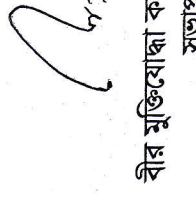 বীর মুক্তিযোদ্ধা ক
সভাপ